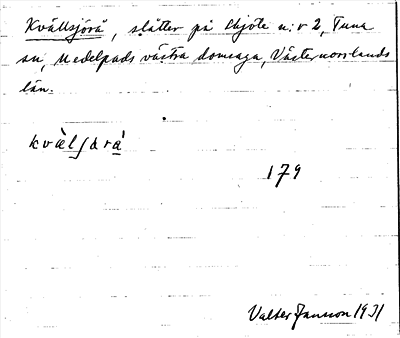 Kvällsjörå, slåtter på Skjöle n:r 2, Tuna
sn, Medelpads västra domsaga, Västernorrlands
län.
kvä̀lʃɑrǻ
179
Valter Jansson 1931